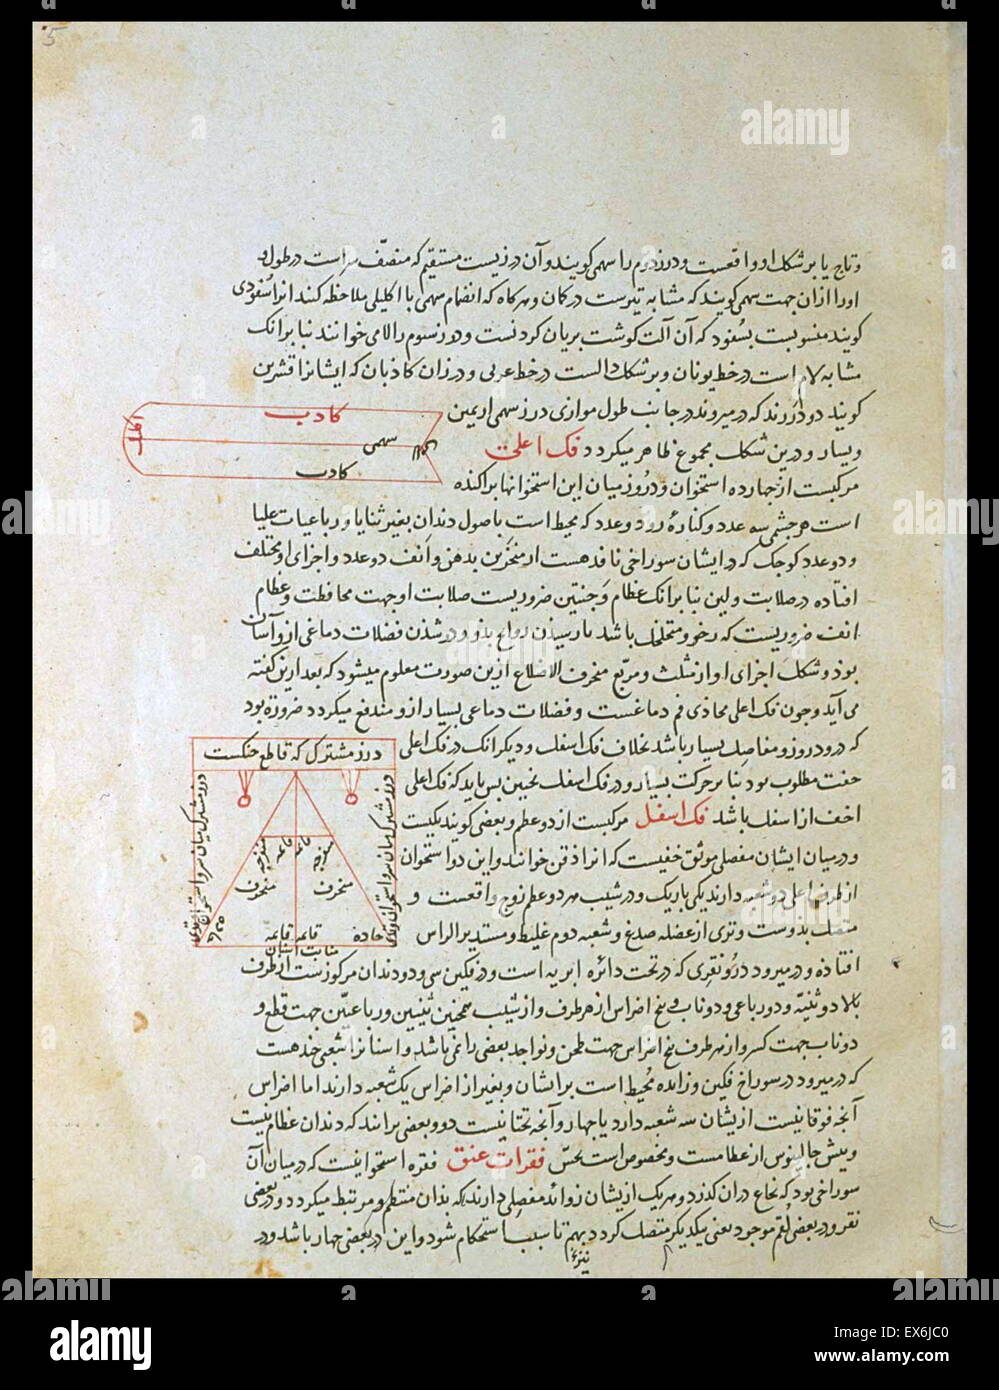 و تاج یا بر شکل او واقعست و درز دوم را سهمی کویند و آن درزیست مستقیم که منصّف سر است در طول و
او را ازان جهت سهمی کویند که مشابه تیرست در کان و هرکاه که انضمام سهمی با اکلیلی ملاحظه کنند انرا سفودی
کویند منسوبست بسفود که آن آلت کوشت بریان کردنست و درز سوم را لامی خوانند بنا برانک
مشابه لام است در خط یونان و بر شکل دالست در خط عربی و درزان کاذبان که ایشانرا قشرین
کویند دو درزند که در میروند در جانب طول موازی درز سهمی از یمین
و یسار و درین شکل مجموع ظاهر میکردد فک اعلی
مرکبست از چهارده استخوان و دروز میان این استخوانها براکنده
است هر چشمی سه عدد و کنارهٔ رو دو عدد که محیط است باصول دندان بغیر ثنایا و رباعیات علیا
و دو عدد کوچک که در ایشان سوراخی نافذ هست از منخرین بدهن و انف دو عدد و اجزای او مختلف
افتاده در صلابت و لین بنا برانک عظام وجنتین ضروریست صلابت او جهت محافظت و عظام
انف ضروریست که رخو و متخلخل باشد تا رسیدن روایح بذو و در شذن فضلات دماغی ازو آسان
بوذ و شکل اجزای او از مثلث و مربّع منحرف الاضلاع ازین صورت معلوم میشود که بعد ازین کفته
می آید و چون فک اعلی محاذی فم دماغست و فضلات دماغی بسیار ازو مندفع میکردد ضرورة بود
که درو دروز و مفاصل بسیار باشد بخلاف فک اسفل و دیکر انک در فک اعلی
خفت مطلوب بود بنا بر حرکت بسیار و در فک اسفل نخین بس باید که فک اعلی
اخف از اسفل باشد فک اسفل مرکبست از دو عظم و بعضی کویند یکیست
و درمیان ایشان مفصلی موثق خفیست که انرا ذقن خوانند و این دو استخوان
از طرف اعلی دو شعبه دارند یکی باریک و در شیب هر دو عظم زوج واقعست و
متصل بدوست وتری از عضله صدغ و شعبه دوم غلیظ و مستدیر الراس
افتاده و در میرود در و نقری که در تحت دائره ابریه است و در فکین سی و دو دندان مرکوزست از طرف
بالا دو ثنیّه و دو رباعی و دو ناب و پنج اضراس از هر طرف و از شیب همچنین ثنیتین و رباعیّتین جهت قطع و
دو ناب جهت کسر و از هر طرف پنج اضراس جهت طحن و نواجذ بعضی را نمی باشد و اسنانرا شعبی چند هست
که در میرود در سوراخ فکین و زائده محیط است بر ایشان و بغیر از اضراس یک شعبه دارند اما اضراس
آنچه فوقانیست از یشان سه شعبه دارد یا چهار و آنچه تحتانیست دو و بعضی برانند که دندان عظام نیست
و پیش جالینوس از عظامست و مخصوص است بحسّ فقرات عنق فقره استخوانیست که درمیان آن
سوراخی بود که نخاع دران کذرد و هر یک از یشان زوائد مفصلی دارند که بذان منتظم و مرتبط میکردد و در بعضی
نقر و در بعضی لقم موجود یعنی بیکدیکر متصل کردد بهم تا سبب استحکام شود و این در بعضی چهار باشد و در
نیز
کاذب
سهمی
کاذب
درز مشترک که قاطع حنکست
درز مشترک میان سر و استخوان
قاعه
منفرجه
منحرف
قاعه
منفرجه
منحرف
حاده
قاعه
قاعه
منابت اسنان
5
alamy
a
alamy stock photo
Image ID: EX6JC0
www.alamy.com